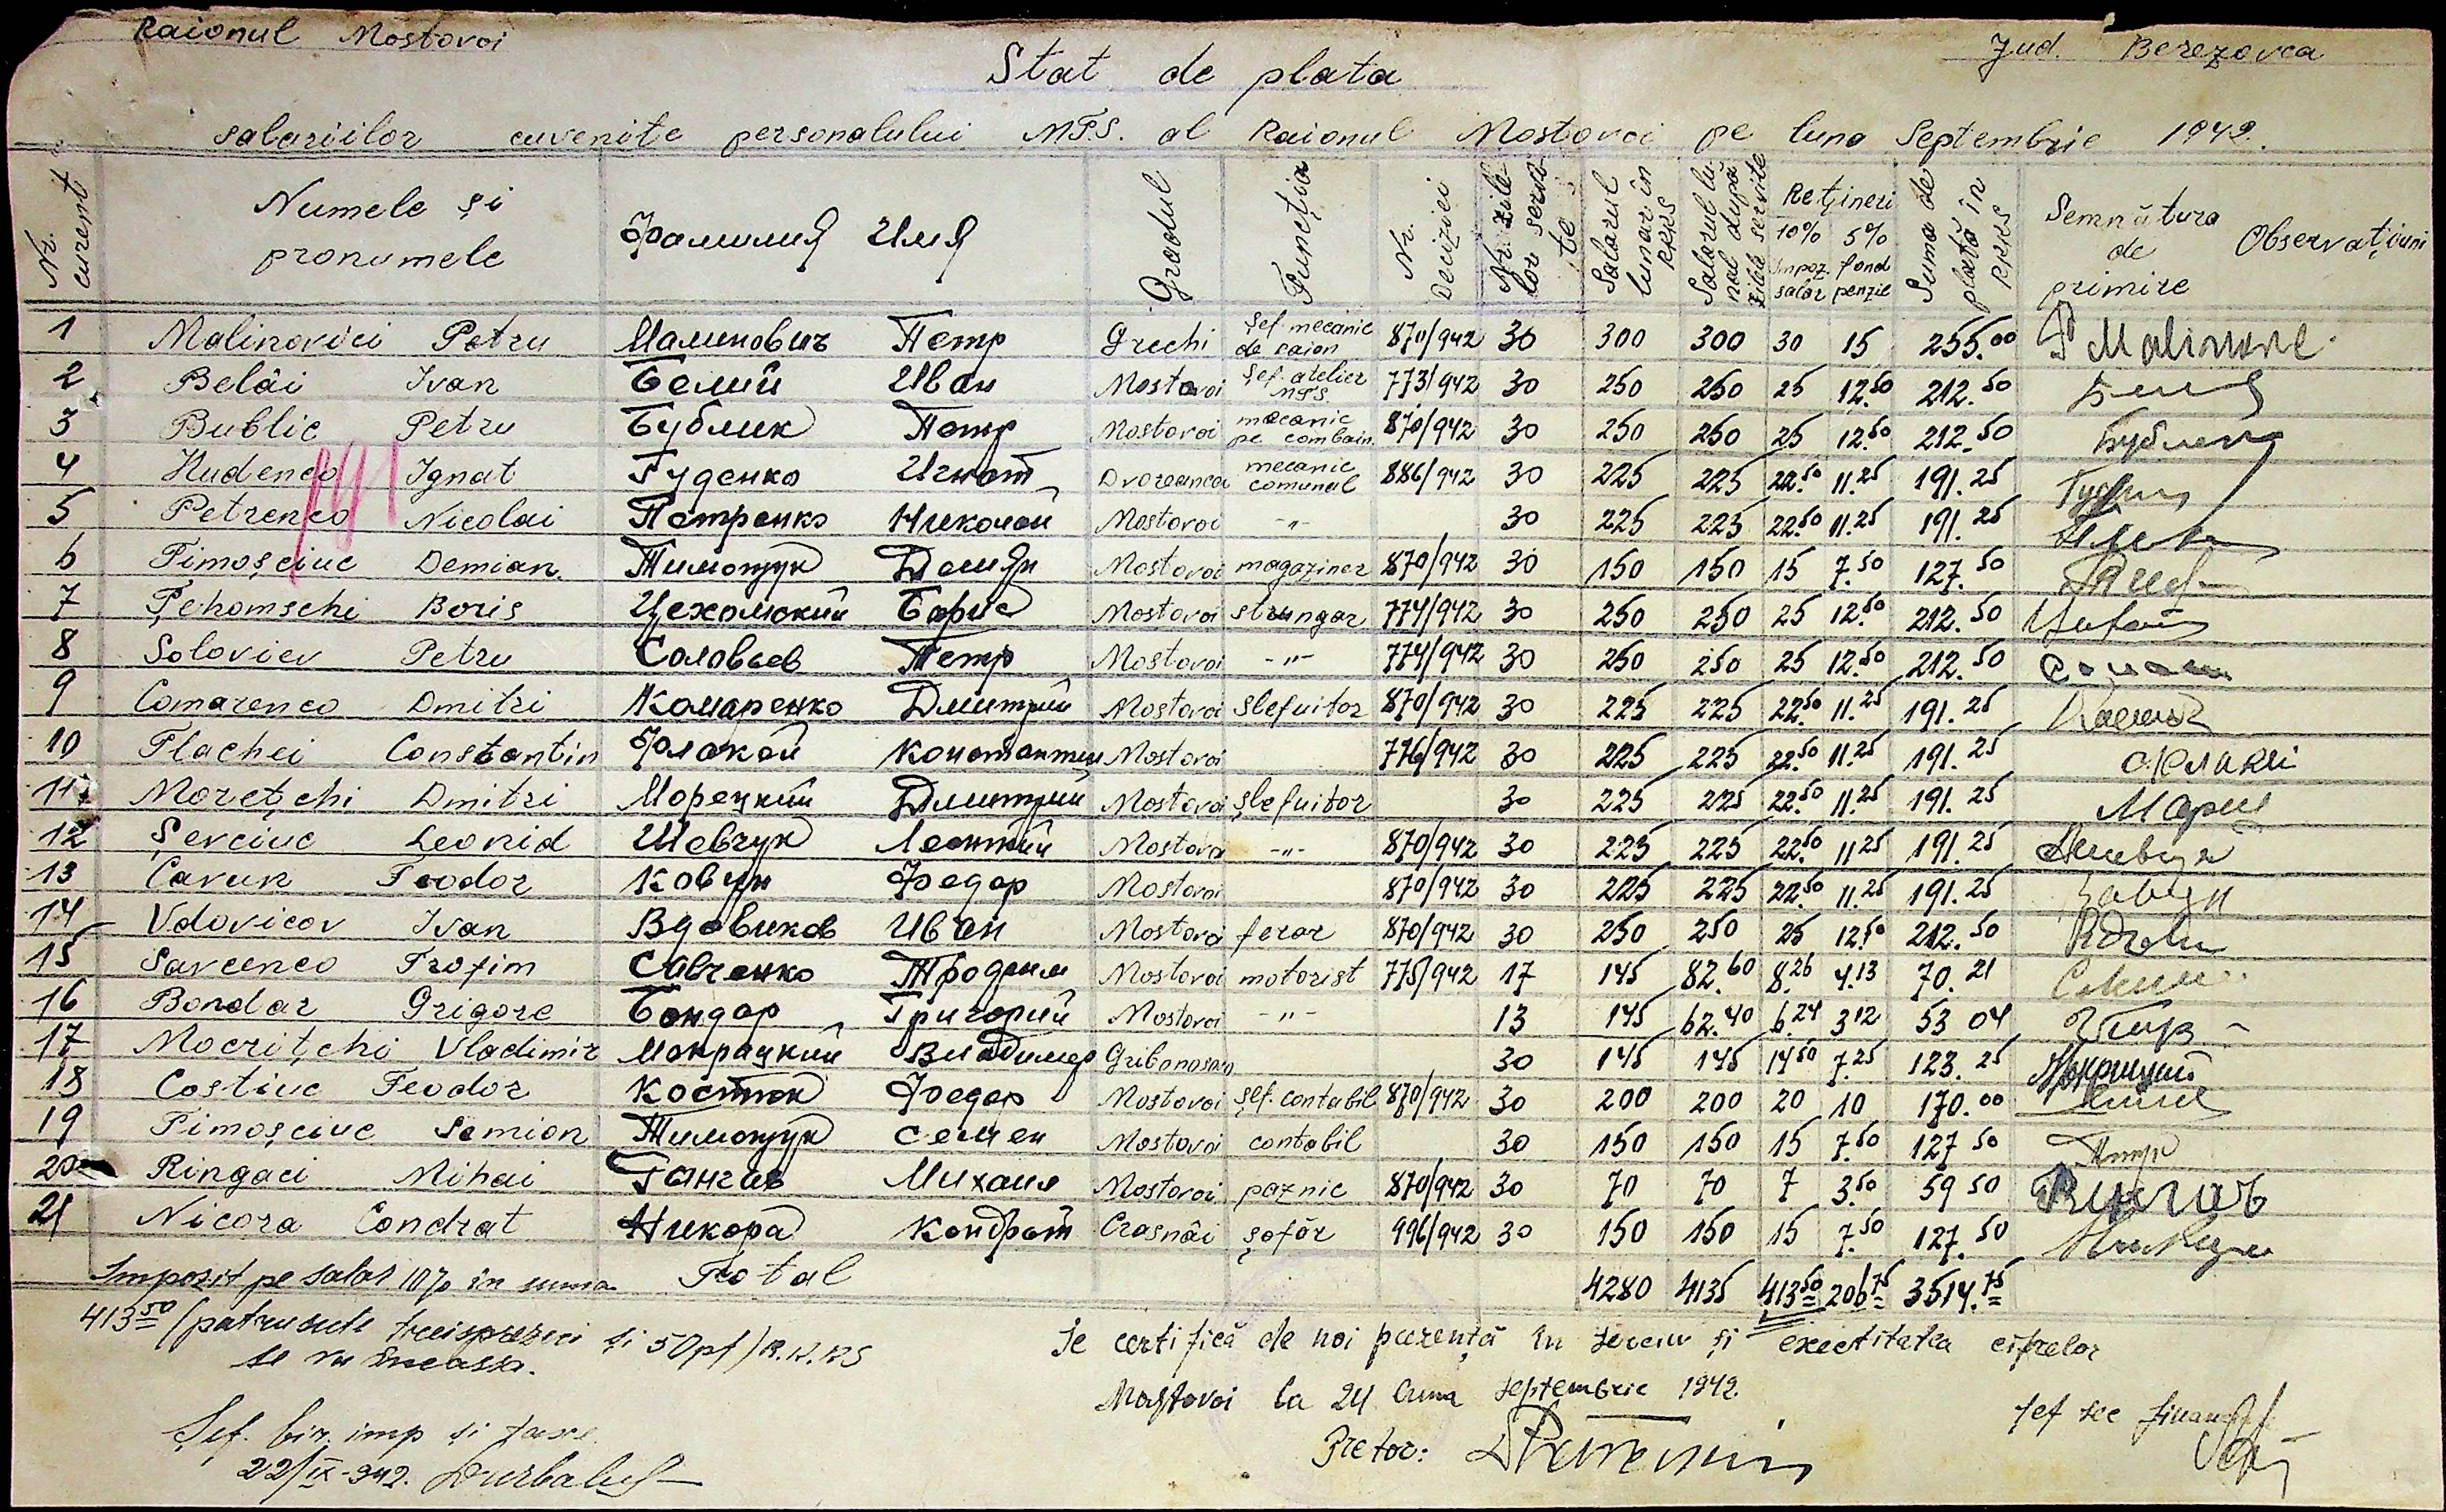 Raionul Mostovoi
Jud. Berezovca
Stat de plata
salariilor cuvenite personalului MTS. al Raionul Mostovoi pe luna Septembrie 1942.
Nr. curent Numele și pronumele Фамилия Имя Gradul Funcția Nr. Deciziei Nr. zilelor servite Salarul lunar în RKKS Salarul lunal după zilele servite Rețineri 10% impoz. salar 5% fond penzie Suma de plată în RKKS Semnătura de primire Observațiuni
1 Malinovici Petru Малинович Петр Grechi Șef. mecanic de raion 870/942 30 300 300 30 15 255.00
2 Belâi Ivan Белий Иван Mostovoi Șef. atelier MTS 773/942 30 250 250 25 12.50 212.50
3 Bublic Petru Бублик Петр Mostovoi mecanic pe combain. 870/942 30 250 250 25 12.50 212.50
4 Hudenco Ignat Гуденко Игнат Dvoreanca mecanic comunal 886/942 30 225 225 22.50 11.25 191.25
5 Petrenco Nicolai Петренко Николай Mostovoi -"- 30 225 225 22.50 11.25 191.25
6 Timoșciuc Demian. Тимощук Демян Mostovoi magaziner 870/942 30 150 150 15 7.50 127.50
7 Țehomschi Boris Цехомский Борис Mostovoi strungar 774/942 30 250 250 25 12.50 212.50
8 Soloviev Petru Соловьев Петр Mostovoi -"- 774/942 30 250 250 25 12.50 212.50
9 Comarenco Dmitri Комаренко Дмитрий Mostovoi slefuitor 870/942 30 225 225 22.50 11.25 191.25
10 Flachei Constantin Флакей Константин Mostovoi 776/942 30 225 225 22.50 11.25 191.25
11 Morețchi Dmitri Морецкий Дмитрий Mostovoi șlefuitor 30 225 225 22.50 11.25 191.25
12 Șevciuc Leonid Шевчук Леонтий Mostovoi -"- 870/942 30 225 225 22.50 11.25 191.25
13 Cavun Feodor Ковун Федор Mostovoi 870/942 30 225 225 22.50 11.25 191.25
14 Vdovicov Ivan Вдовиков Иван Mostovoi ferar 870/942 30 250 250 25 12.50 212.50
15 Savcenco Trofim Савченко Трофим Mostovoi motorist 775/942 17 145 82.60 8.26 4.13 70.21
16 Bondar Grigore Бондар Григорий Mostovoi -"- 13 145 62.40 6.24 3 12 53 04
17 Mocrițchi Vladimir Мокрицкий Владимер 30 145 145 14 50 7.25 123.25 Мокрицкий
18 Costiuc Feodor Костюк Федор Mostovoi șef. contabil 870/942 30 200 200 20 10 170.00
19 Timoșciuc Semion Тимощук Семен Mostovoi contabil 30 150 150 15 7.50 127 50
20 Ringaci Mihai Михаил Mostovoi paznic 870/942 30 70 70 7 3.50 59 50
21 Nicora Condrat Никора Кондрат Crasnâi șofôr 996/942 30 150 150 15 7.50 127.50
Total 4280 4135 413 50 206 75 3514.75
Impozit pe salar 10% în suma
413 50 (patrusute treisprezeci și 50 pf) R.K.KS
se va încassa.
Se certifică de noi prezență în serviciu și exectitatea cifrelor
Mostovoi la 24 luna Septembrie 1942.
Șef. bir. imp și taxe
22/IX-942.
Pretor:
Șef sec financ